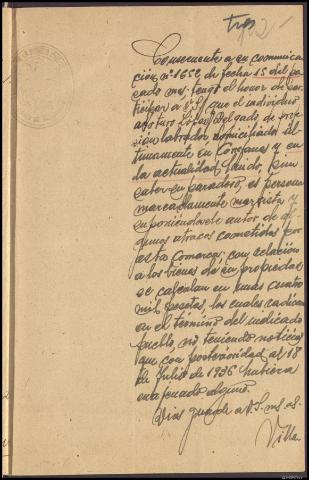 tres
Consecuente a su comunica-
ción nº 1652 de fecha 15 del pa-
sado mes, tengo el honor de par-
ticipar a V.S. que el individuo
Arturo López Delgado, de profe-
sión labrador domiciliado úl-
timamente en y en
la actualidad huido, sin
saber su paradero, es persona
marcadamente marxista y
suponiendosele autor de al-
gunos atracos cometidos por
esta comarca; con relación
a los bienes de su propiedad
se calculan en unas cuatro
mil pesetas, los cuales radican
en el término del indicado
pueblo, no teniendo noticias
que con posterioridad al 18
de Julio de 1936 hubiera
enagenado alguno.
Dios guarde a V.S. ms. as.
Villa